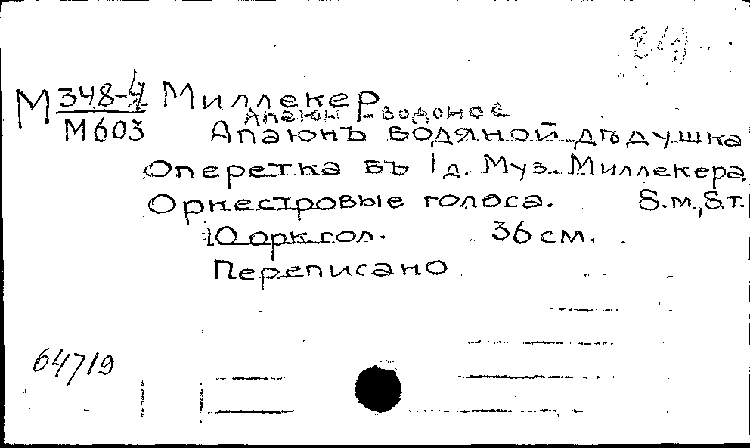 М 348-4 Миллекер
М603 Апаюн-водонос
Апаюнъ водяной дѣдушка
Оперетка въ 1 д. Муз. Миллекера
Оркестровые голоса. S.m., S.т.
10 орк.гол. 36 см.
Переписано
64719